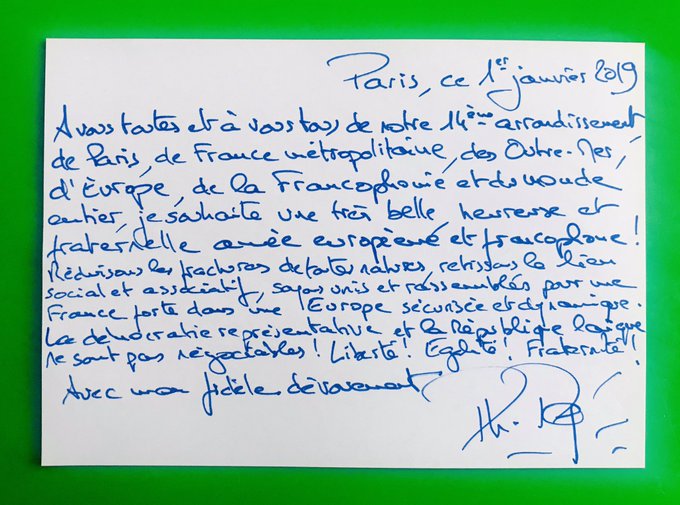 Paris, ce 1er janvier 2019
A vous toutes et à vous tous de notre 14ème arrondissement
de Paris, de France métropolitaine, des Outre-Mer,
d'Europe, de la Francophonie et du monde
entier, je souhaite une très belle, heureuse et
fraternelle année européenne et francophone !
Réduisons les fractures de toutes natures, retissons le lien
social et associatif, soyons unis et rassemblés pour une
France forte dans une Europe sécurisée et dynamique.
La démocratie représentative et la République laïque
ne sont pas négociables ! Liberté ! Egalité ! Fraternité !
Avec mon fidèle dévouement